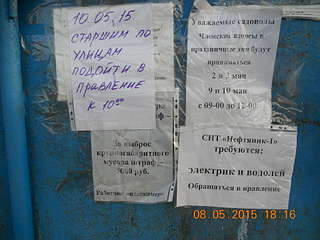 10.05.15
СТАРШИМ ПО
УЛИЦАМ
ПОДОЙТИ В
ПРАВЛЕНИЕ
К 10⁰⁰
Уважаемые садоводы
Членские взносы в
праздничные дни будут
приниматься
2 и 3 мая
9 и 10 мая
с 09-00 до 12-00
За выброс
крупногабаритного
мусора штраф –
руб.
СНТ «Нефтяник-1»
требуются:
электрик и водолей
Обращаться в правление
08.05.2015 18:16